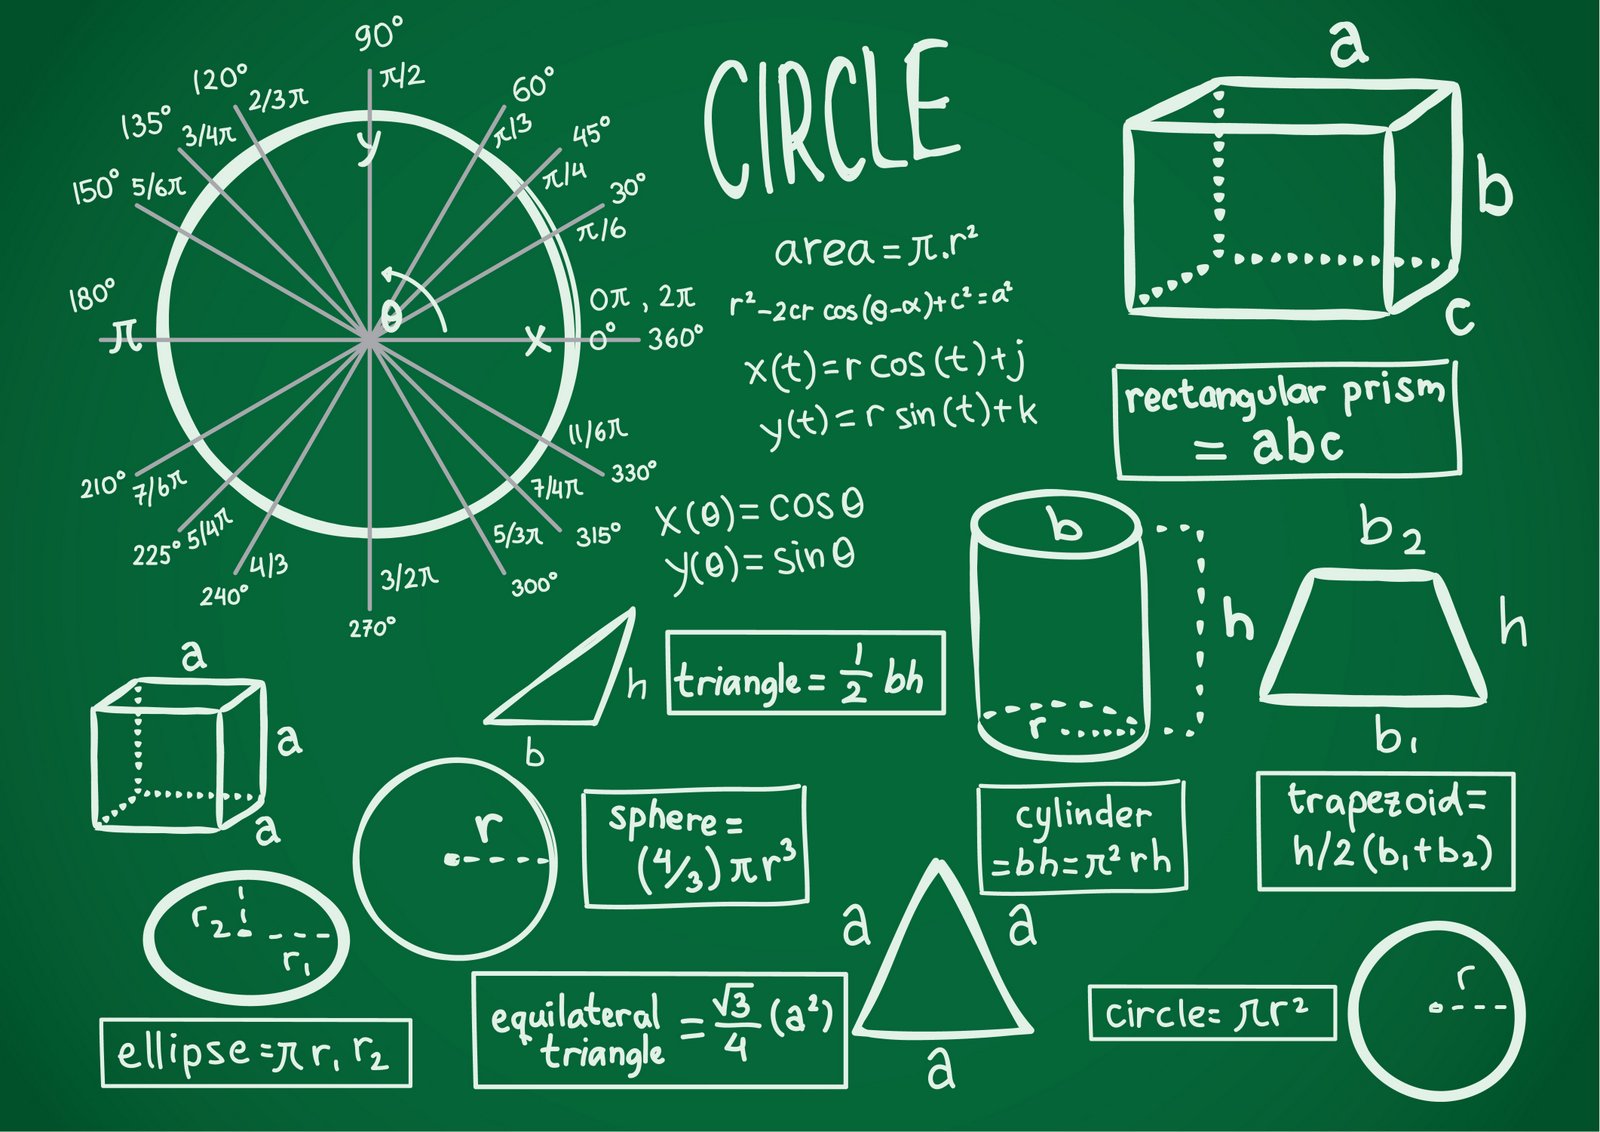 90°
π/2
120°
2/3π
60°
π/3
135°
3/4π
45°
π/4
150° 5/6π
30°
π/6
y
180°
π
θ
x
0π , 2π
0° 360°
210° 7/6π
11/6π
330°
225° 5/4π
7/4π
315°
240° 4/3
5/3π
300°
3/2π
270°
CIRCLE
area = π.r²
r² - 2cr cos(θ-α)+c² = a²
x(t) = r cos(t)+j
y(t) = r sin(t)+k
x(θ) = cosθ
y(θ) = sinθ
a
b
c
rectangular prism
= abc
b
h
r
b₂
h
b₁
a
a
a
h
b
triangle = 1/2 bh
r
sphere =
(4/3) πr³
cylinder
=bh=π²rh
trapezoid=
h/2 (b₁+b₂)
r₂
r₁
ellipse =π r₁ r₂
equilateral
triangle
= √3/4 (a²)
a
a
a
circle= πr²
r